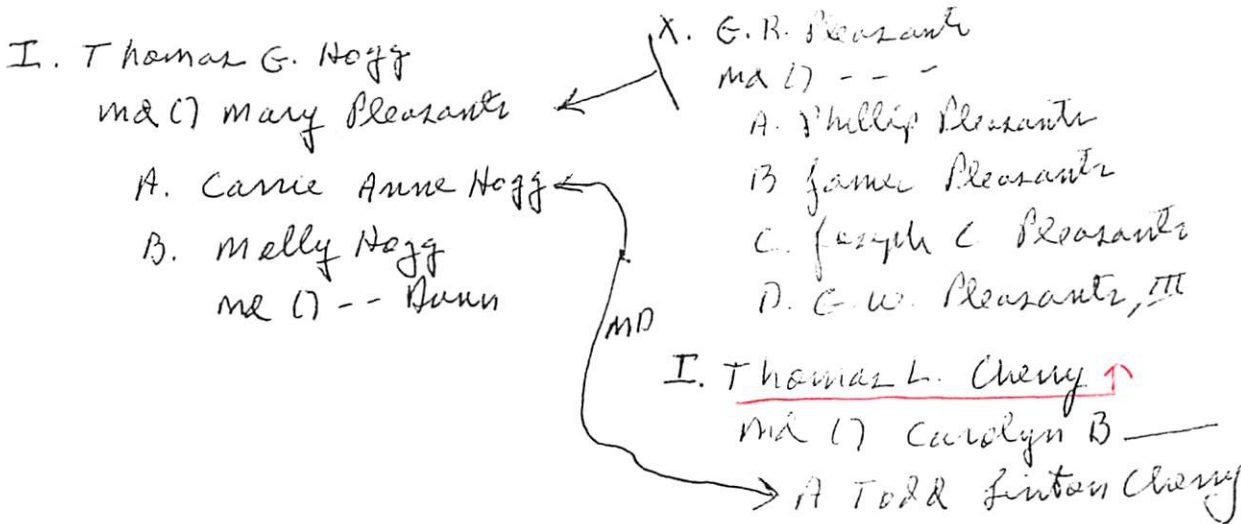 I. Thomas G. Hogg
md () Mary Pleasants
A. Carrie Anne Hogg
B. Molly Hogg
md () - - Dunn
X. G. R. Pleasants
md () - - -
A. Phillip Pleasants
B James Pleasants
C. Joseph C Pleasants
D. G. W. Pleasants, III
MD
I. Thomas L. Cherry ↑
md () Carolyn B ——
A Todd Linton Cherry